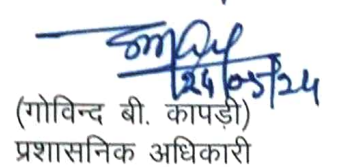 24/05/24
(गोविन्द बी. कापड़ी)
प्रशासनिक अधिकारी